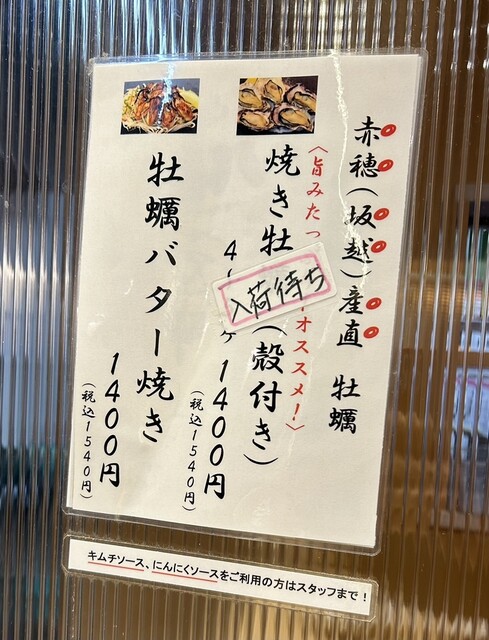 赤穂(坂越)産直 牡蠣
〈旨みたっ
オススメ!〉
焼き牡
(殻付き)
入荷待ち
4
ケ 1400円
(税込1540円)
牡蠣バター焼き
1400円
(税込1540円)
キムチソース、にんにくソースをご利用の方はスタッフまで!